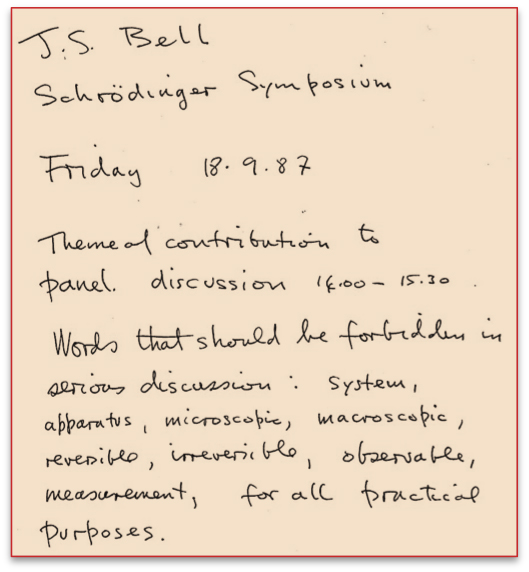 J.S. Bell
Schrödinger Symposium
Friday 18.9.87
Theme of contribution to
panel. discussion 14.00 – 15.30.
Words that should be forbidden in
serious discussion: system,
apparatus, microscopic, macroscopic,
reversible, irreversible, observable,
measurement, for all practical
purposes.